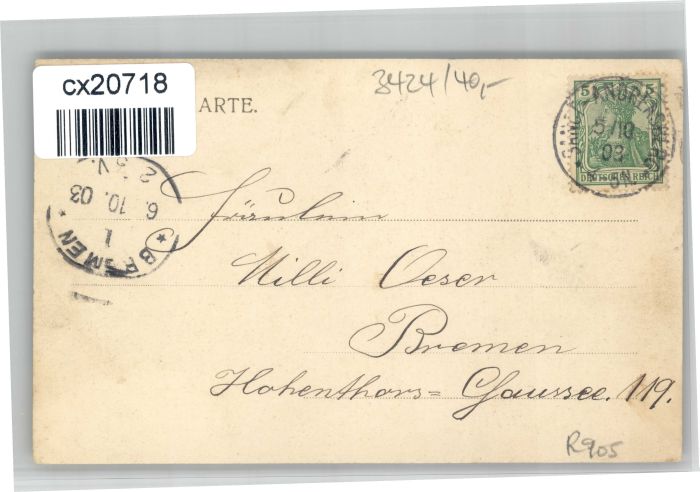 cx20718
3424/40,-
ARTE.
5 5
ANDREASBERG
5/10
03
DEUTSCHES REICH
6. 10. 03
1
* BREMEN *
Fräulein
Milli Oeser
Bremen
Hohenthors= Chaussee. 119.
R905